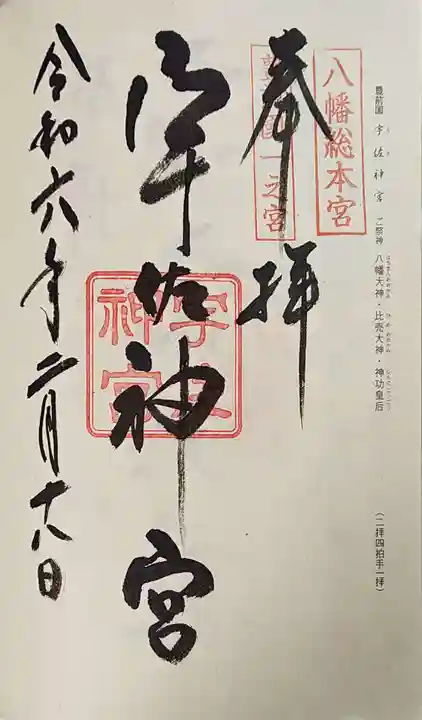 豊前国 宇佐神宮 ご祭神 八幡大神・比売大神・神功皇后 (二拝四拍手一拝)
八幡総本宮
豊前国一之宮
奉拝
宇佐神宮
宇佐神宮
令和六年二月十八日